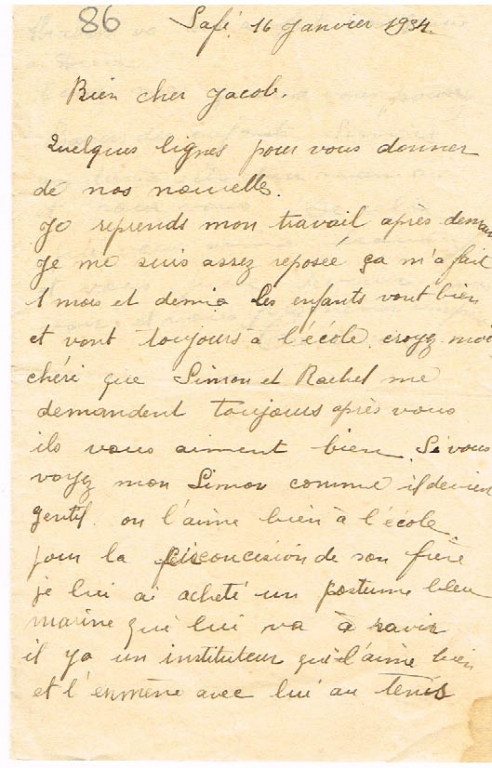 86
Safi, 16 Janvier 1934.
Bien cher Jacob.
Quelques lignes pour vous donner
de nos nouvelles.
Je reprends mon travail après demain
Je me suis assez reposée ça m'a fait
1 mois et demie les enfants vont bien
et vont toujours à l'école, croyez moi
chéri que Simon et Rachel me
demandent toujours après vous
ils vous aiment bien. Si vous
voyz mon Simon comme il devient
gentil. on l'aime bien à l'école,
pour la de son frère
je lui ai acheté un costume bleu
marine qui lui va à ravir
il ya un instituteur qui l'aime bien
et l'enmène avec lui au tenis